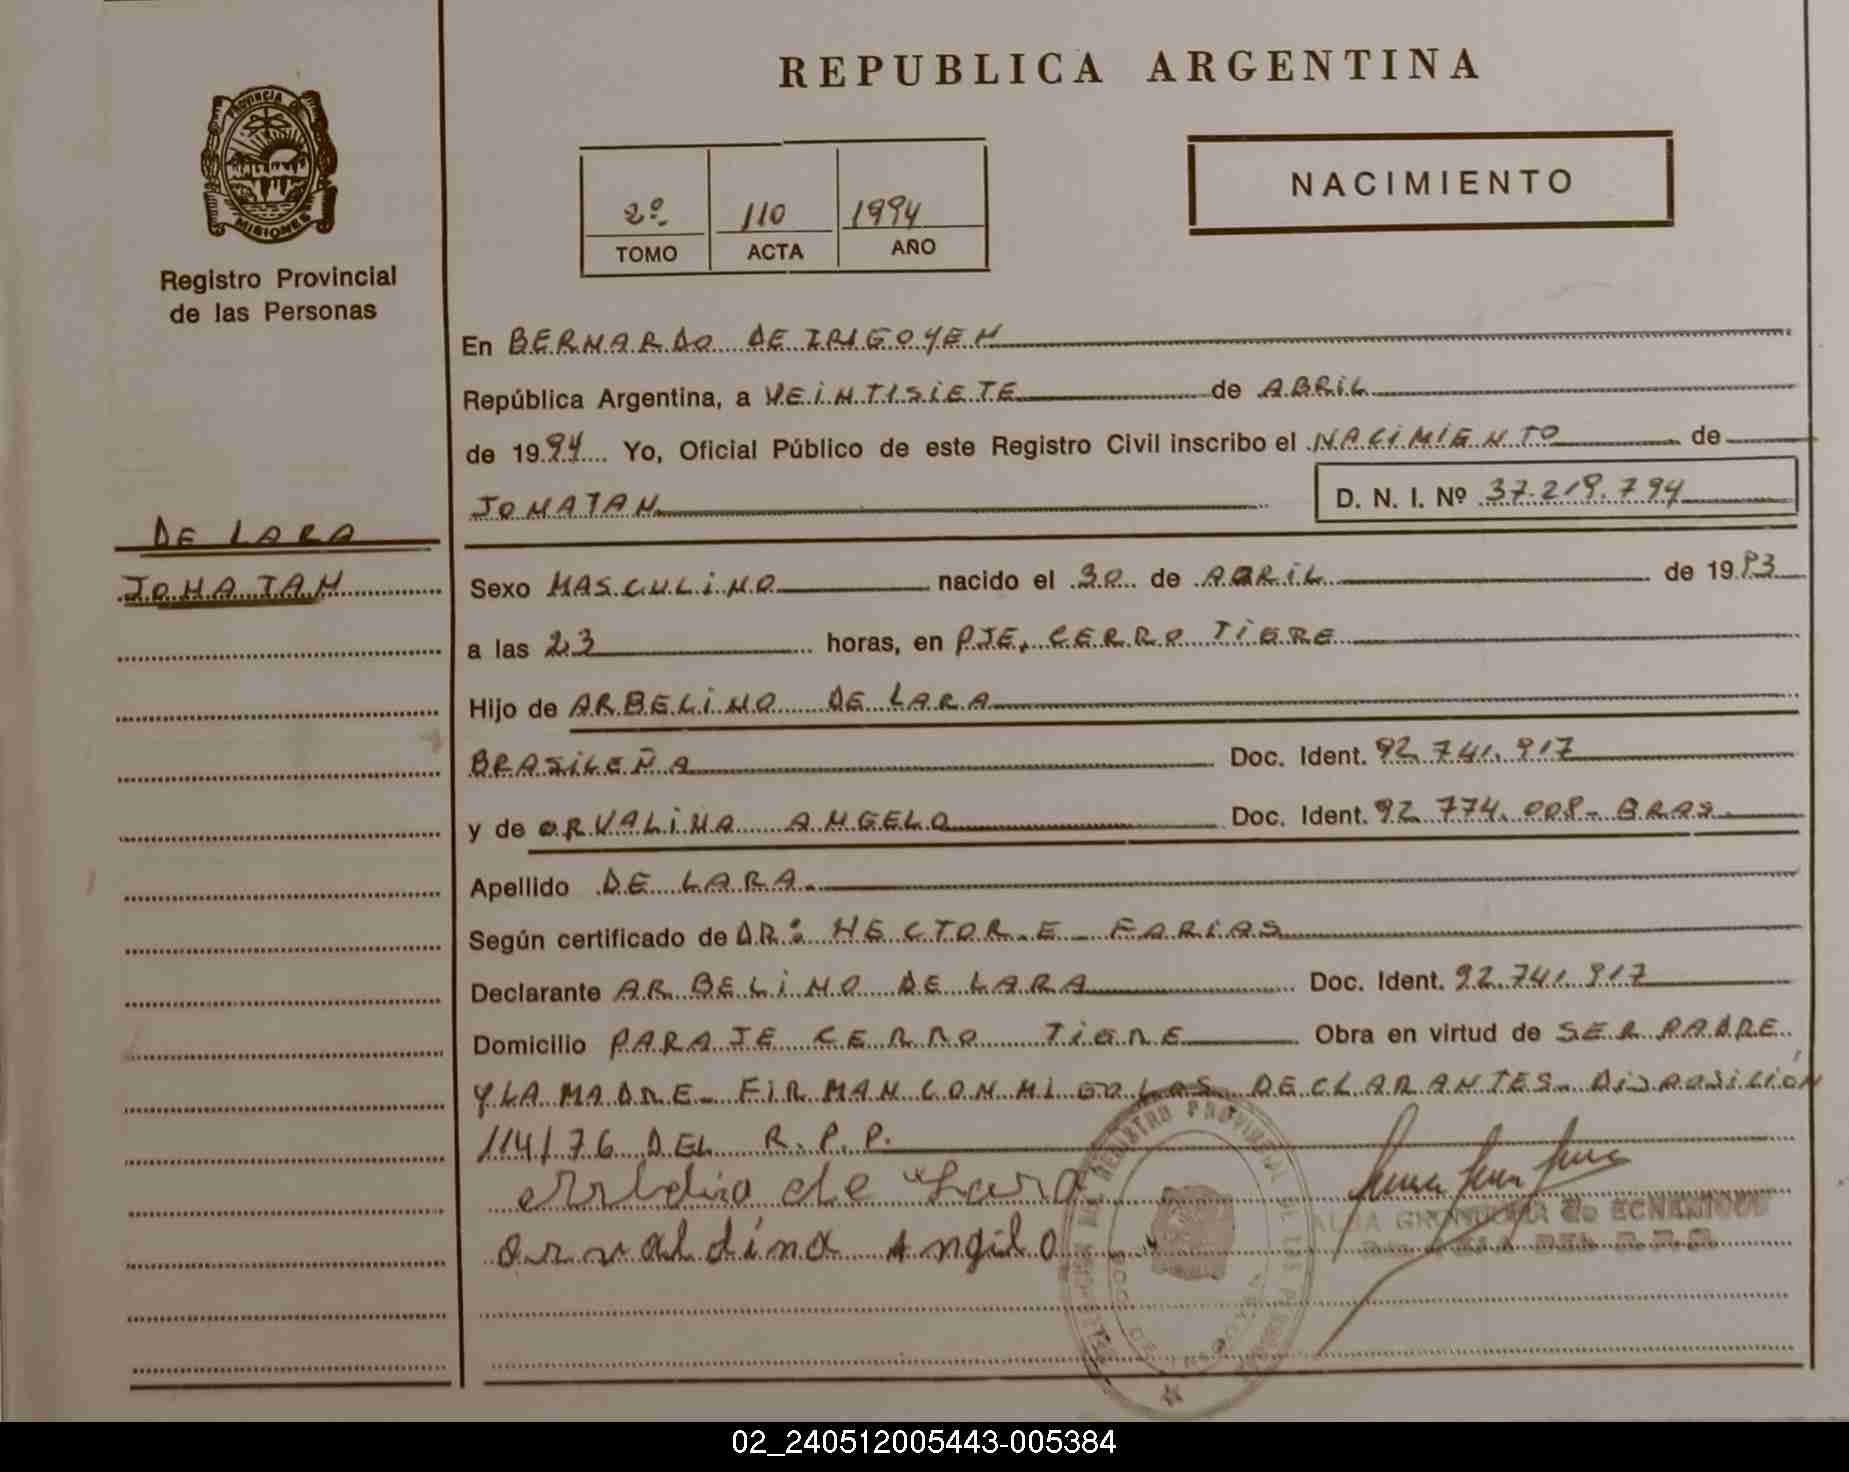 REPUBLICA ARGENTINA
PROVINCIA DE
MISIONES
Registro Provincial
de las Personas
NACIMIENTO
2º 110 1994
TOMO ACTA AÑO
En BERNARDO DE IRIGOYEN
República Argentina, a VEINTISIETE de ABRIL
de 1994 Yo, Oficial Público de este Registro Civil inscribo el NACIMIENTO de
JONATAN D. N. I. Nº 37.219.794
DE LARA
JONATAN
Sexo MASCULINO nacido el 30 de ABRIL de 1993
a las 23 horas, en PJE. CERRO TIGRE
Hijo de ARBELINO DE LARA
BRASILEÑA Doc. Ident. 92.741.917
y de ORVALINA ANGELO Doc. Ident. 92.774.008- BRAS.
Apellido DE LARA.
Según certificado de DR: HECTOR. E. FARIAS
Declarante ARBELINO DE LARA Doc. Ident. 92.741.917
Domicilio PARAJE CERRO TIGRE Obra en virtud de SER PADRE
Y LA MADRE- FIRMAN CONMIGO LOS DECLARANTES- DISPOSICION
114/76 DEL R. P. P.
de Lara
orvaldina Angilo
REGISTRO PROVINCIAL DE LAS PERSONAS
02_240512005443-005384